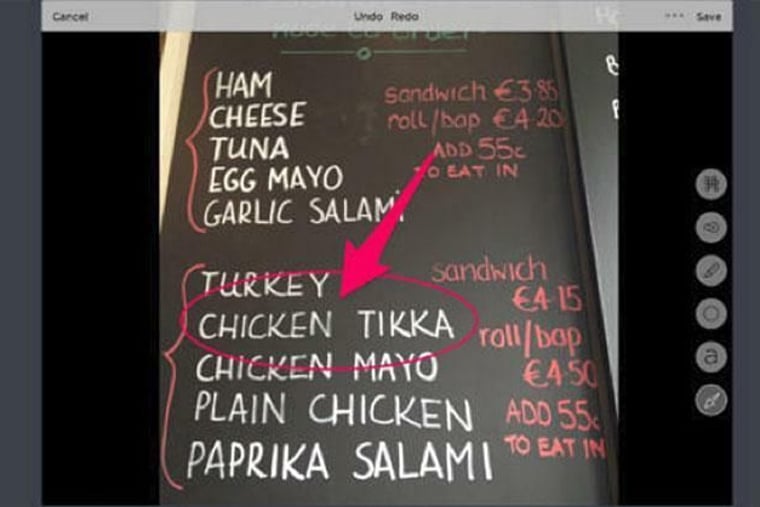 Cancel
Undo Redo
Save
HAM
CHEESE
TUNA
EGG MAYO
GARLIC SALAMI
sandwich €3.85
roll/bap €4.20
ADD 55c
TO EAT IN
TURKEY
CHICKEN TIKKA
CHICKEN MAYO
PLAIN CHICKEN
PAPRIKA SALAMI
sandwich
€4.15
roll/bap
€4.50
ADD 55c
TO EAT IN
a